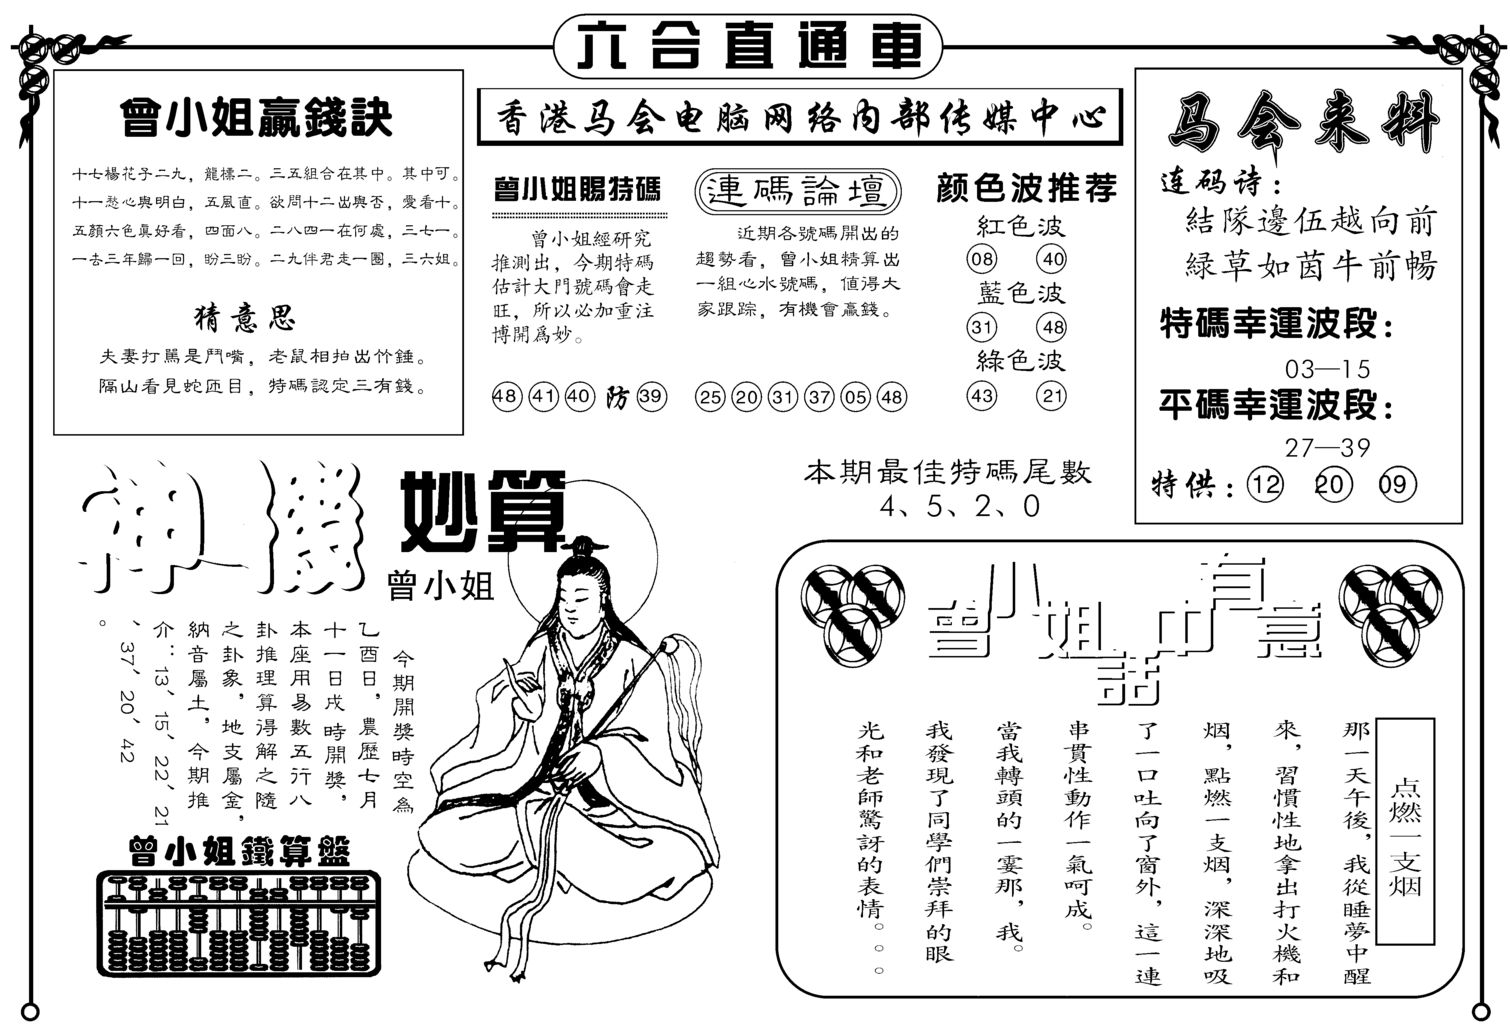 六合直通車
香港马会电脑网络内部传媒中心
曾小姐贏錢訣
十七楊花子二九，龍標二。三五組合在其中。其中可。
十一愁心與明白，五風直。欲問十二出與否，愛看十。
五顏六色真好看，四面八。二八四一在何處，三七一。
一去三年歸一回，盼三盼。二九伴君走一圈，三六姐。
猜意思
夫妻打罵是鬥嘴，老鼠相拍出竹錘。
隔山看見蛇匹目，特碼認定三有錢。
曾小姐賜特碼
曾小姐經研究
推測出，今期特碼
估計大門號碼會走
旺，所以必加重注
博開爲妙。
48 41 40 防 39
連碼論壇
近期各號碼開出的
趨勢看，曾小姐精算出
一組心水號碼，值得大
家跟踪，有機會贏錢。
25 20 31 37 05 48
颜色波推荐
紅色波
08 40
藍色波
31 48
綠色波
43 21
本期最佳特碼尾數
4、5、2、0
马会来料
连码诗：
結隊邊伍越向前
緑草如茵牛前暢
特碼幸運波段：
03—15
平碼幸運波段：
27—39
特供：12 20 09
神機妙算
曾小姐
今期開獎時空為
乙酉日，農歷七月
十一日戌時開獎，
本座用易數五行八
卦推理算得解之隨
之卦象，地支屬金，
納音屬土，今期推
介：13、15、22、21
、37、20、42
。
曾小姐鐵算盤
曾小姐話中有意
点燃一支烟
那一天午後，我從睡夢中醒
來，習慣性地拿出打火機和
烟，點燃一支烟，深深地吸
了一口吐向了窗外，這一連
串貫性動作一氣呵成。
當我轉頭的一霎那，我。
我發現了同學們崇拜的眼
光和老師驚訝的表情。。。